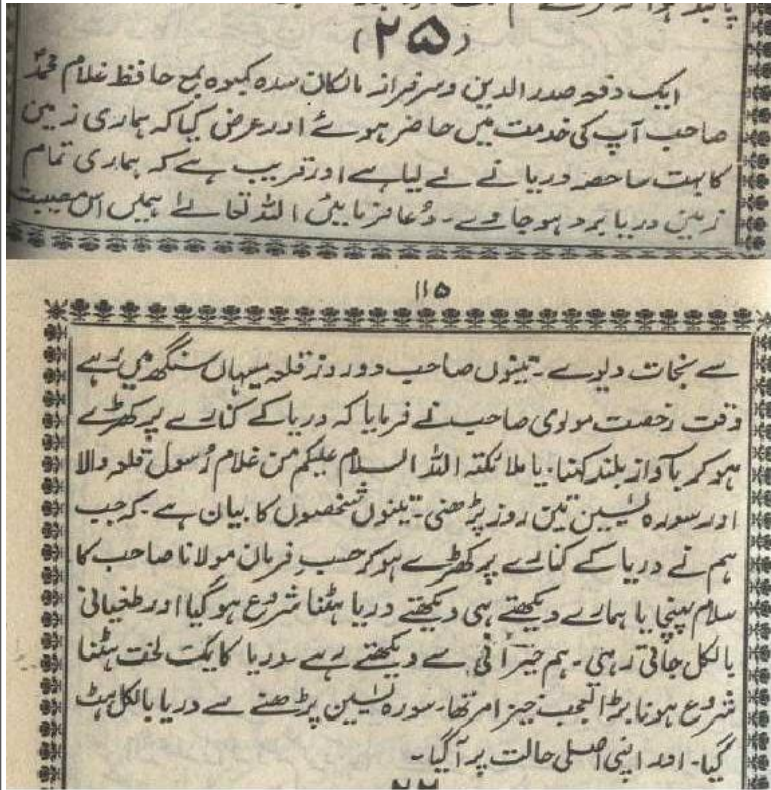 (۲۵)
ایک دفعہ صدر الدین وسرفراز مالکان سدہ کمبوہ بمع حافظ غلام محمدؐ
صاحب آپ کی خدمت میں حاضر ہوئے اور عرض کیا کہ ہماری زمین
کا بہت سا حصہ دریا نے لے لیا ہے اور قریب ہے کہ ہماری تمام
زمین دریا برد ہو جاوے۔ دُعا فرمائیں اللہ تعالےٰ ہمیں اس مصیبت
۱۱۵
سے نجات دیوے۔ تینوں صاحب دو روز قلعہ میہاں سنگھ میں رہے
وقت رخصت مولوی صاحب نے فرمایا کہ دریا کے کنارے پر کھڑے
ہو کر بآواز بلند کہنا۔ یا ملائکتہ اللہ السلام علیکم من غلام رُسول قلعہ والا
اور سورہ یٰسین تین روز پڑھنی۔ تینوں شخصوں کا بیان ہے۔ کہ جب
ہم نے دریا کے کنارے پر کھڑے ہو کر حسب فرمان مولانا صاحب کا
سلام پہنچایا ہمارے دیکھتے ہی دیکھتے دریا ہٹنا شروع ہو گیا اور طغیانی
بالکل جاتی رہی۔ ہم حیرانی سے دیکھتے رہے دریا کا یکت لخت ہٹنا
شروع ہونا بڑا تعجب خیز امر تھا۔ سورہ یٰسین پڑھنے سے دریا بالکل ہٹ
گیا۔ اور اپنی اصلی حالت پر آگیا۔